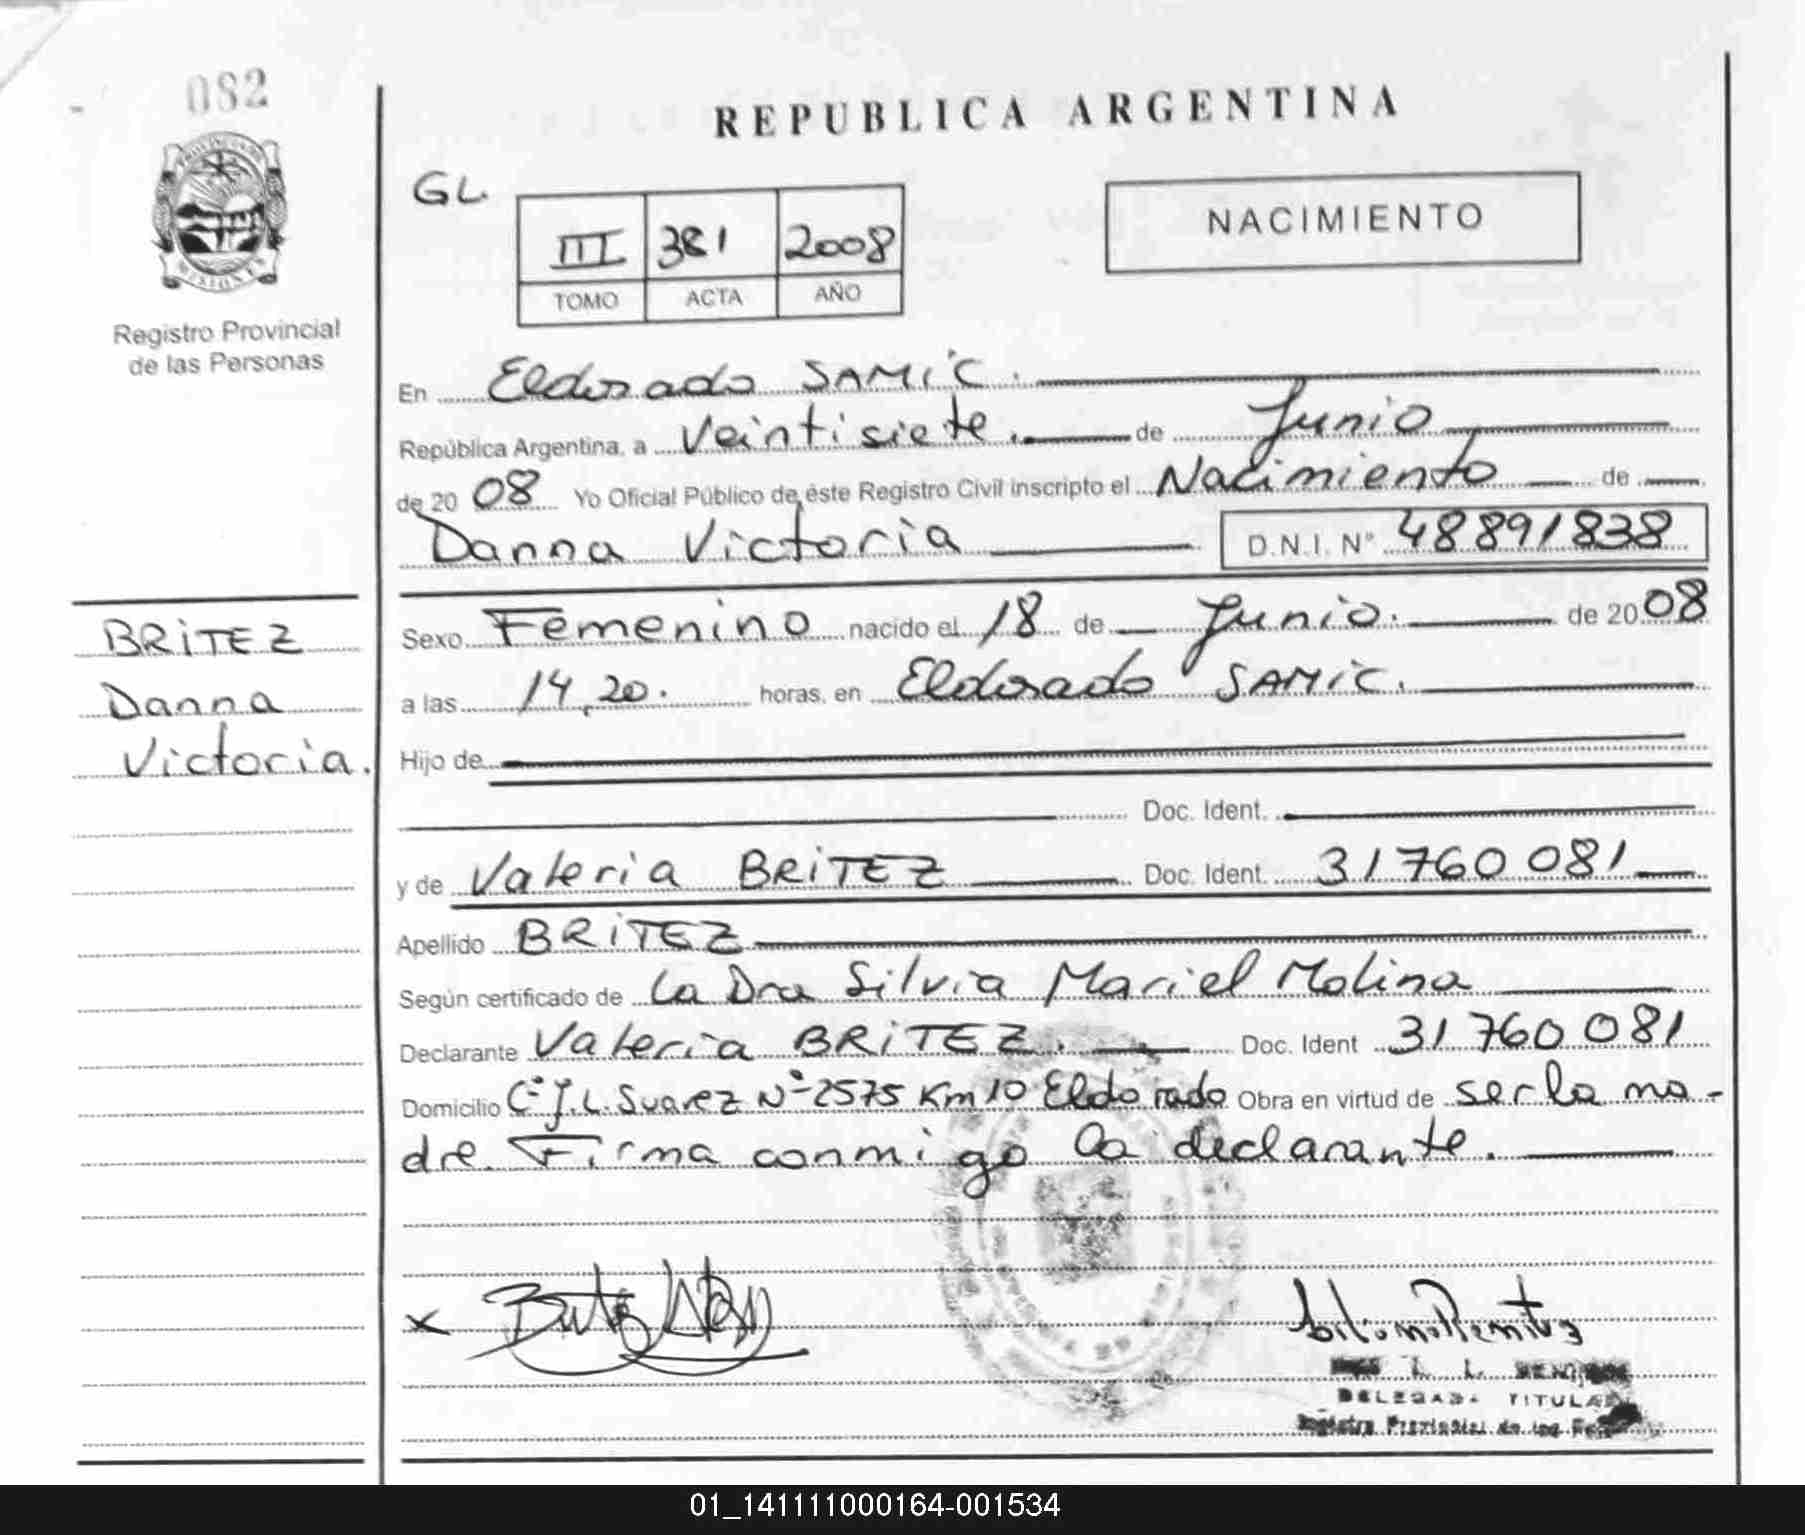 082
REPUBLICA ARGENTINA
GL.
III 381 2008
TOMO ACTA AÑO
NACIMIENTO
MISIONES
Registro Provincial
de las Personas
En Eldorado SAMIC.
República Argentina, a Veintisiete. de Junio
de 20 08 Yo Oficial Público de éste Registro Civil inscripto el Nacimiento de
Danna Victoria D.N.I. Nº 48891838
BRITEZ
Danna
Victoria.
Sexo Femenino nacido el 18 de Junio. de 20 08
a las 14,20. horas, en Eldorado SAMIC.
Hijo de
Doc. Ident.
y de Valeria BRITEZ Doc. Ident. 31760081
Apellido BRITEZ
Según certificado de La Dra Silvia Mariel Molina
Declarante Valeria BRITEZ. Doc. Ident 31760081
Domicilio Cº J.L. Suarez Nº 2575 Km 10 Eldorado Obra en virtud de ser la ma-
dre. Firma conmigo la declarante.
x Britez
DELEGADA TITULAR
Registro Provincial de las
01_141111000164-001534